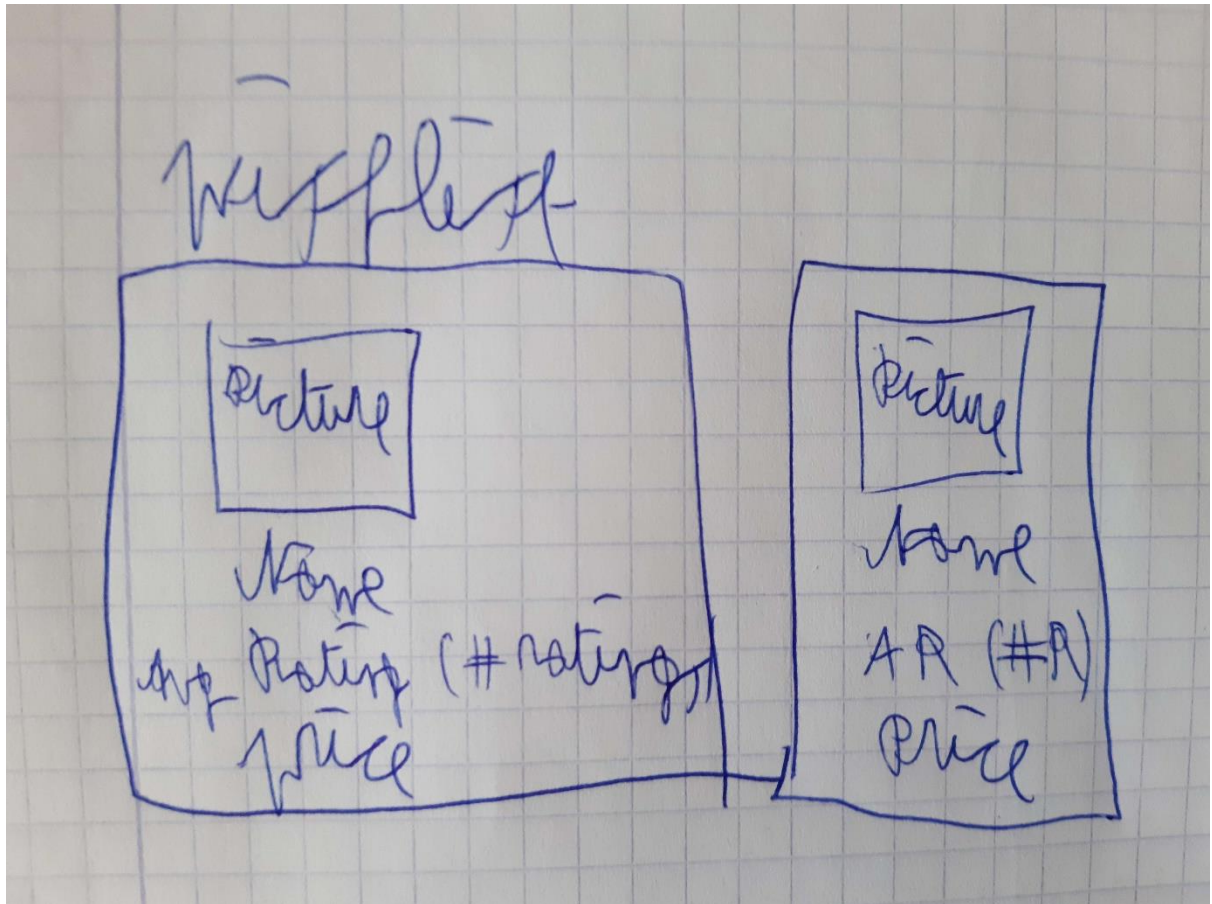 Wishlist
Picture
Name
Avg Rating (# ratings)
price
Picture
Name
AR (#R)
Price